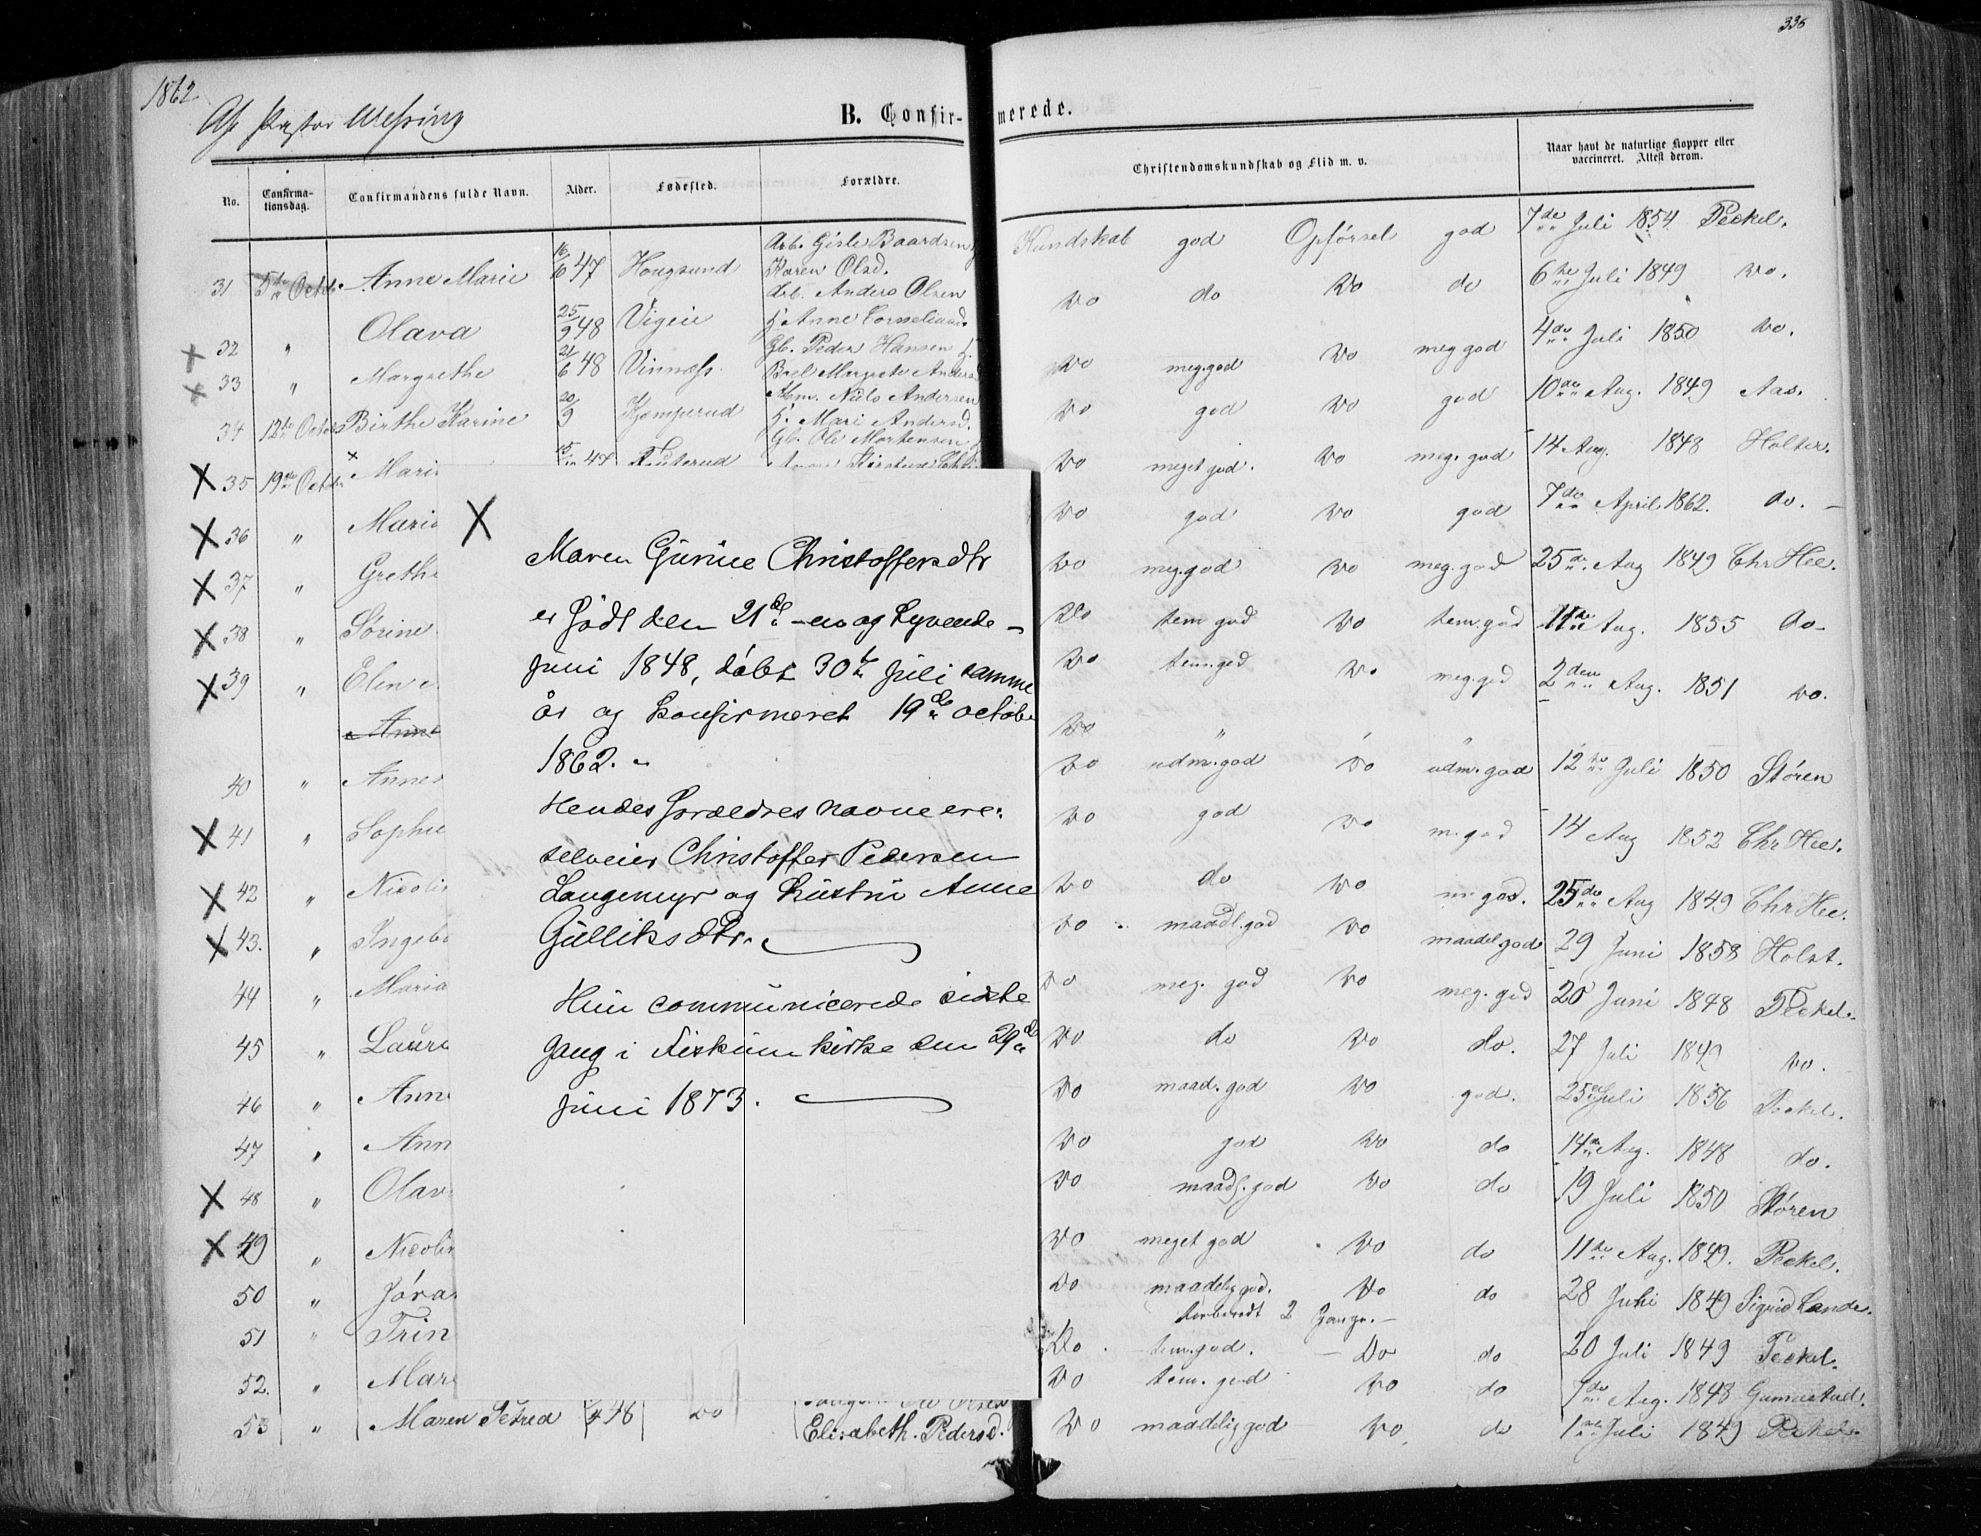 1862
335
Af Pastor
B. Confirmerede.
No.
Confirmationsdag.
Confirmandens fulde Navn.
Alder.
Fødested.
Forældre.
Christendomskundskab og Flid m. v.
Naar havt de naturlige Kopper eller vaccineret. Attest derom.
31 5te Octb. Anne Marie 16/6 47 Hougsund Arb. Gisle Baardsen Karen Olsd. Kundskab god Opførsel god 7de Juli 1854 Peckel.
32 " Olava 25/9 48 Vigeie Arb. Anders Olsen h. Anne Corneliusd. Do do Do do 6te Juli 1849 Do.
33 " Margrethe 21/6 48 Vinness Gb. Peder Hansen h. Berel Margrete Do meg.god Do meg god 4de Juli 1850 Do.
34 12te Octb. Birthe Karine 20/9 Kjemperud Hm. Niels Andersen h. Mari Andersd. Do god Do god 10de Aug. 1849 Aas.
X 35 19de Octb. Mari 47 Gb. Ole Mortensen Do meget god. Do meg. god 14 Aug. 1848 Holter.
X 36 " Mari Do god Do god 7de April 1862. do.
X 37 " Greth Do meg.god Do meg. god 25de Aug 1849 Chr Hee.
X 38 " Sørine Do tem god Do tem. god 11te Aug. 1855 Do
X 39 " Elen Do tem.god Do meg.god 2den Aug. 1851 Do.
Anne Do " "
40 " Anne Do udm.god Do udm.god 12te Juli 1850 Støren
X 41 " Sophie Do god Do m.god 14 Aug 1852 Chr Hee.
X 42 " Nicolin Do do Do m.god. 25de Aug 1849 Chr Hee.
X 43. " Ingeb Do maadl.god Do maadel god 29 Juni 1858 Holst.
44 " Maria Do meg. god Do meg. god 20 Juni 1848 Peckel.
45 " Laur Do do Do do. 27 Juli 1849 Do.
46 " Ann Do maad.god Do god. 25de Juli 1856 Peckel.
47 " Ann Do god Do do 14de Aug. 1848 do.
X 48 " Olav Do maadl.god Do do 19 Juli 1850 Støren
X 49 " Nicolin Do meget god Do do 11te Aug. 1849. Peckel.
50 " Jøra Do maadelig god. Do do 28 Juni 1849 Sigrid Lande.
2 Gange.
51 " Trin Do tem.god. Do do 20 Juli 1849 Peckel.
52. " Mar Do tem. god Do do 7de Aug. 1848
53 " Maren Petrea 48 Do Elisabeth Pedersd. Do maadelig god Do do 1ste Juli 1849 Peckel.
X
Maren Gurine Christoffersdtr
er født den 21de -en og tyvende-
juni 1848, døbt 30te juli samme
år og konfirmeret 19de octobe
1862. -
Hendes forældres navne ere:
selveier Christoffer Pedersen
Langemyr og hustru Anne
Gulliksdtr.
Hun communicerede sidste
gang i Fiskum kirke den 29de
juni 1873.